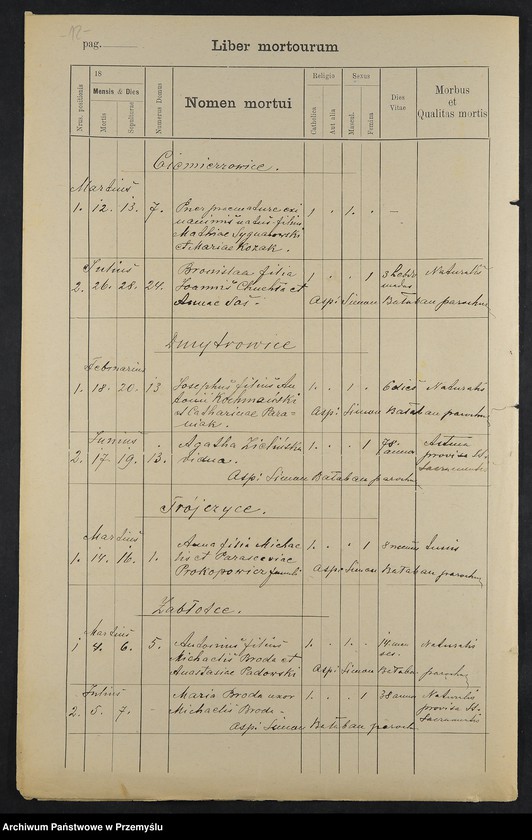 -12-
pag.
Liber mortuorum
18
Mensis & Dies
Religio
Sexus
Nrus. positionis
Mortis
Sepulturae
Numerus Domus
Nomen mortui
Catholica
Aut alia
Mascul.
Femina
Dies
Vitae
Morbus
et
Qualitas mortis
Ciemierzowice.
Martius
1. 12. 13. 7. Puer praemature exa
nimis natus filius
Mathiae
et Mariae Kozak.
1 . 1. . -
Julius
2. 26. 28. 24. Bronislaa filia
Joannis Chuchla et
Annae Saś.
1 . . 1 3 hebdo
madas Naturalis
Aspi: Simon Bataban parochus
Dmytrowice
Februarius
1. 18. 20. 13 Josephus filius An
tonii
et Catharinae Para-
niak.
1. . 1 . 6 dies Naturalis
Aspi: Simon Bataban parochus
Junius
2. 17. 19. 13. Agatha
vidua.
1. . . 1 78
annor Astma
provisa St
Sacramentis
Aspi: Simon Bataban parochus
Trójczyce.
Martius
1. 14. 16. 1. Anna filia Michae
lis et Parasceviae
Prokopowicz
1. . . 1 8 menses Tussis
Aspi: Simon Bataban parochus
Zabłotce.
Martius
1 4. 6. 5. filius
Michaelis Broda et
Anastasiae Padowski
1. . 1. . 14 men
ses. Naturalis
Aspi: Simon Bataban parochus
Julius
2. 5. 7. - Maria Broda uxor
Michaelis Broda -
1. . . 1 38 annor Naturalis
provisa St.
Sacramentis
Aspi: Simon Bataban paroch
Archiwum Państwowe w Przemyślu